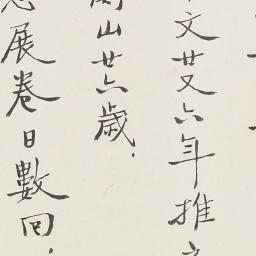 文廿又六年推
山廿六歲
展卷日數回